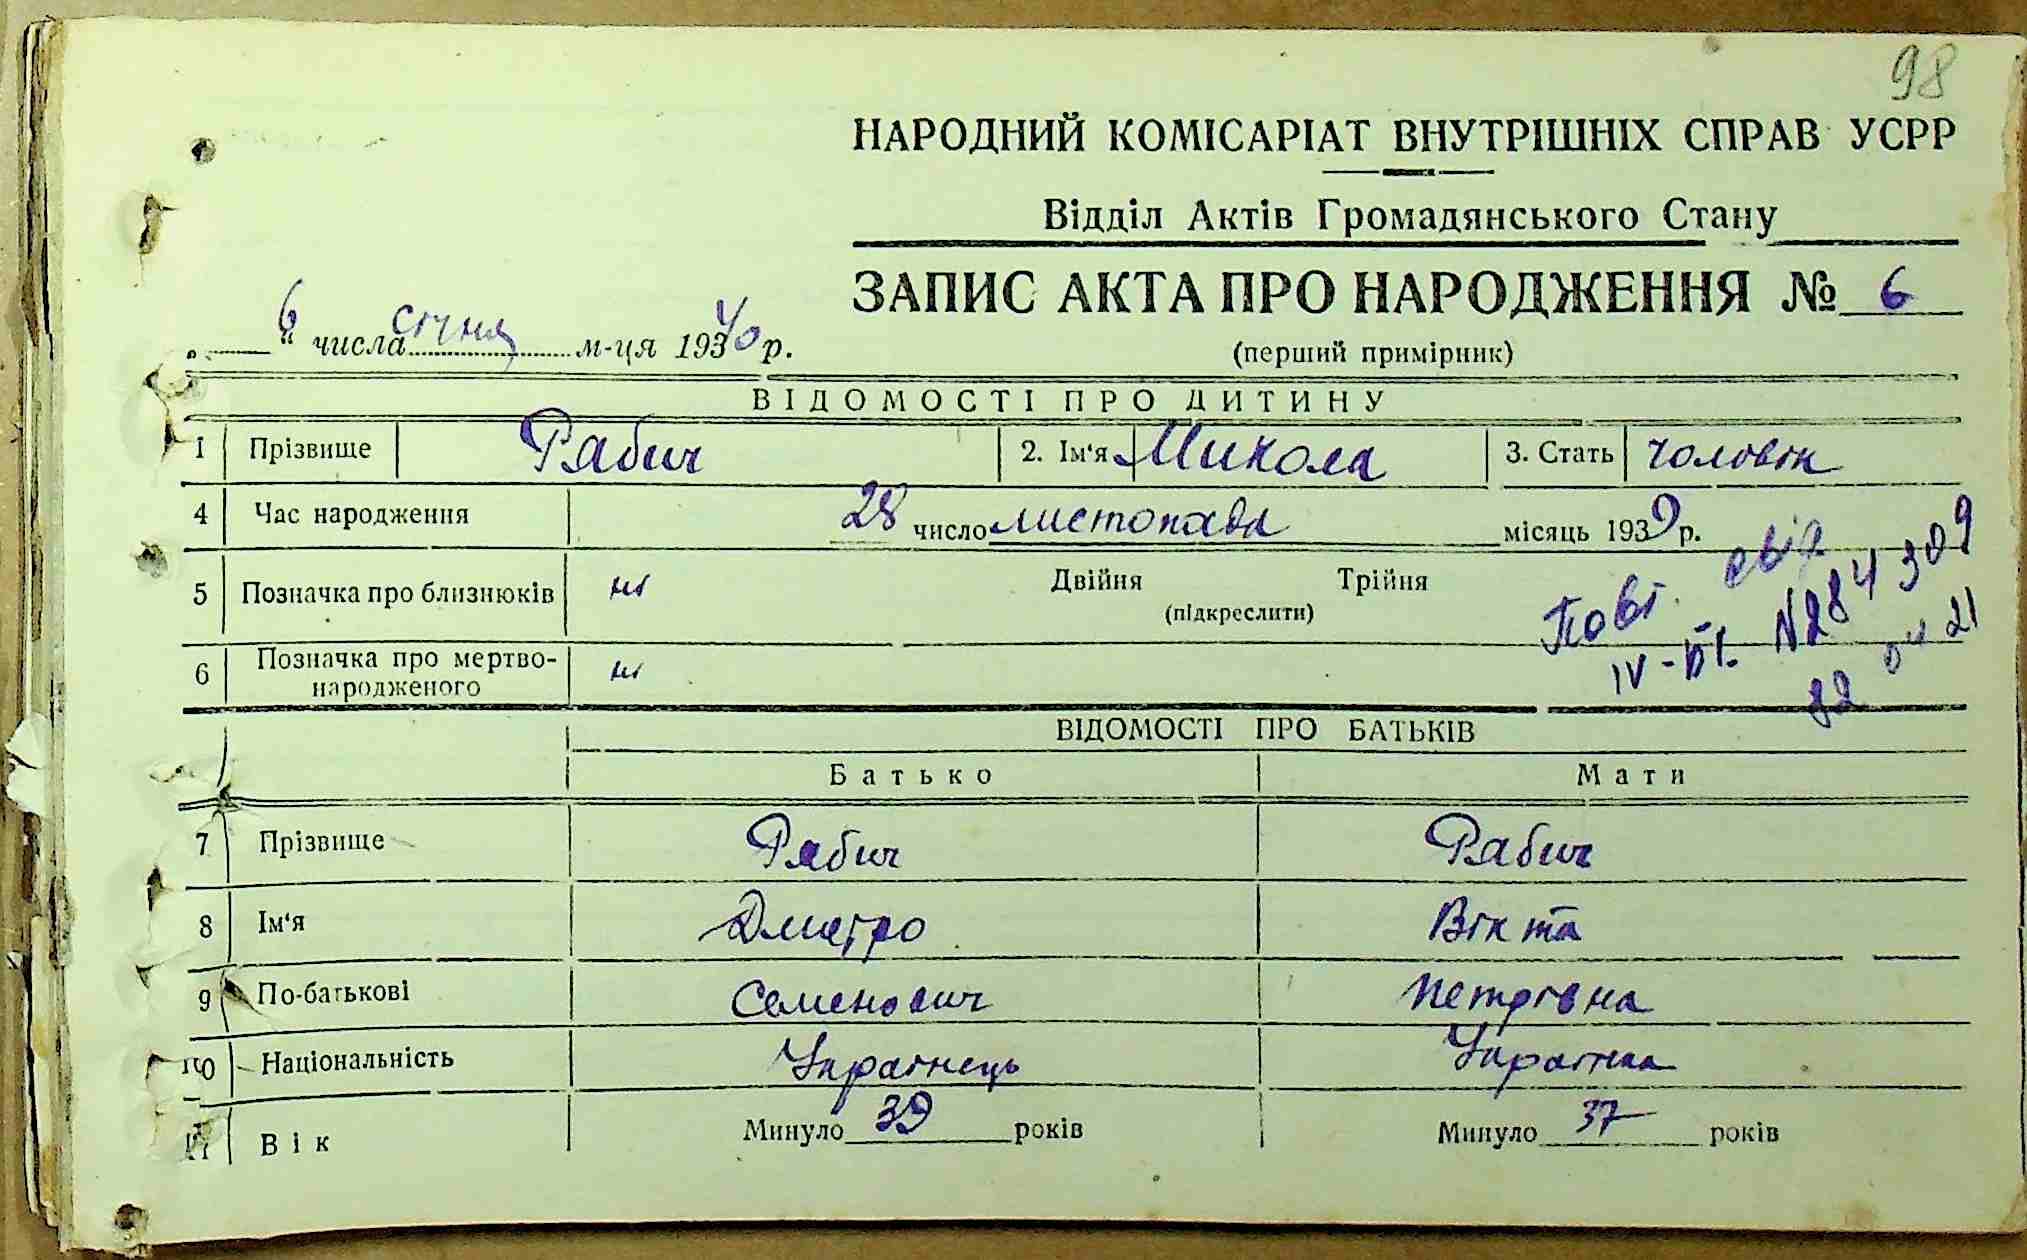 98
НАРОДНИЙ КОМІСАРІАТ ВНУТРІШНІХ СПРАВ УСРР
Відділ Актів Громадянського Стану
ЗАПИС АКТА ПРО НАРОДЖЕННЯ № 6
(перший примірник)
„6“ числа січня м-ця 1940 р.
ВІДОМОСТІ ПРО ДИТИНУ
1 Прізвище Рябич 2. Ім'я Микола 3. Стать чоловік
4 Час народження 28 число листопада місяць 1939 р.
5 Позначка про близнюків ні Двійня Трійня
(підкреслити)
6 Позначка про мертвонародженого ні
Повт. свід
IV-БП. №284309
21
ВІДОМОСТІ ПРО БАТЬКІВ
Батько Мати
7 Прізвище Рябич Рябич
8 Ім'я Дмитро Вікта
9 По-батькові Семенович Петрівна
10 Національність Українець Українка
11 Вік Минуло 39 років Минуло 37 років